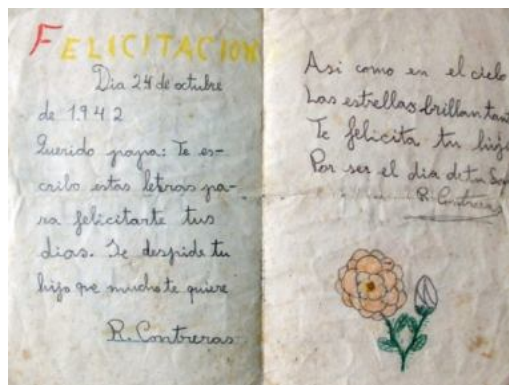 FELICITACION
Dia 24 de octubre
de 1942
Querido papa: Te es-
cribo estas letras pa-
ra felicitarte tus
dias. Se despide tu
hijo que mucho te quiere
R. Contreras
Asi como en el cielo
Las estrellas brillan tant
Te felicita tu hijo
Por ser el dia de tu
R. Contreras